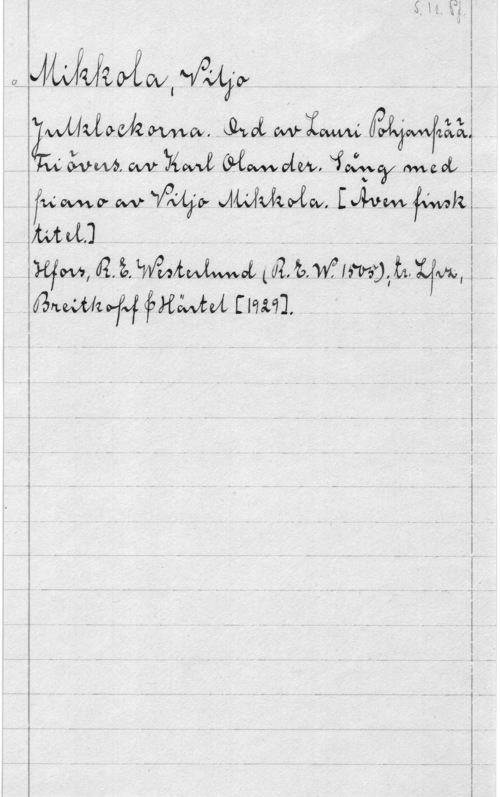 S. 12. Pf.
Mikkola, Viljo
Julklockorna. Ord av Lauri Pohjanpää.
Fri övers. av Karl Olander. Sång med
piano av Viljo Mikkola. [Även finsk
titel.]
Hfors, R. E. Westerlund (R. E. W. 1505); tr. Lpz,
Breitkopf & Härtel [1929].